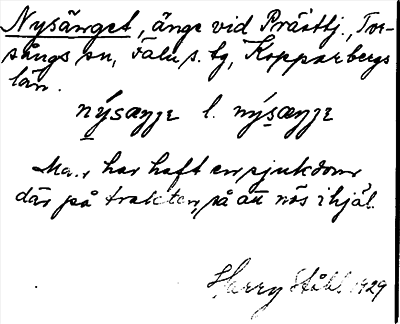 Nysänget, änge vid Prästtj., Tor-
sångs sn, Falu s. tg, Kopparbergs
län.
nýsæŋjɛ l. nýsæŋjɛ
Ma., har haft en sjukdom
där på trakten, så att nös ihjäl
Harry Ståhl 1929